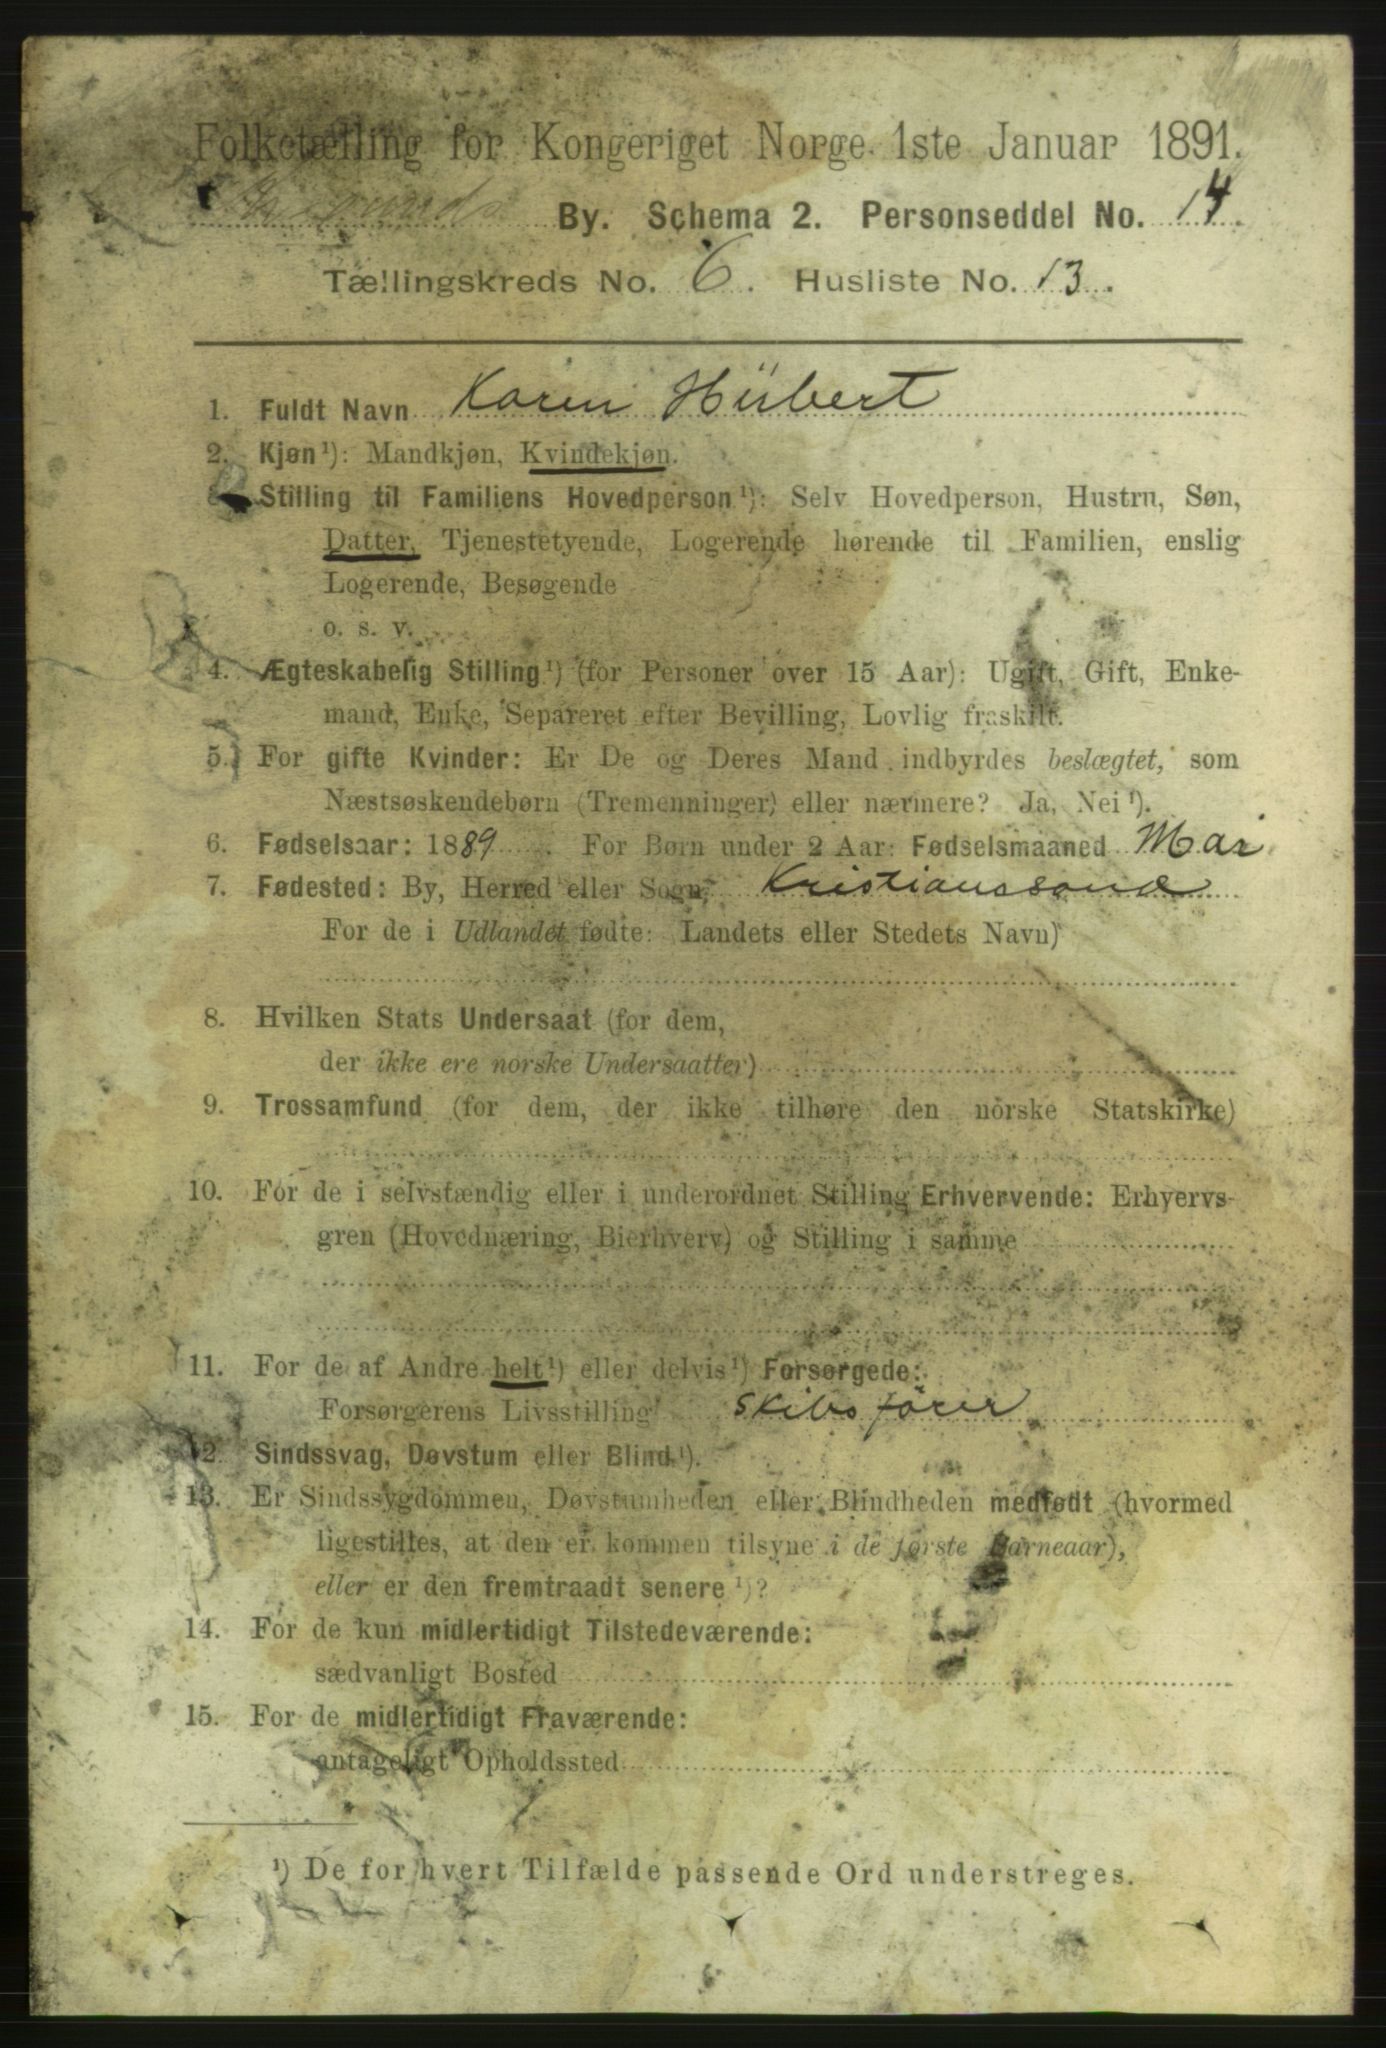 Folketælling for Kongeriget Norge 1ste Januar 1891.
By. Schema 2. Personseddel No. 14.
Tællingskreds No. 6. Husliste No. 13.
1. Fuldt Navn Karen Hübert
2. Kjøn¹): Mandkjøn, Kvindekjøn.
3. Stilling til Familiens Hovedperson¹): Selv Hovedperson, Hustru, Søn,
Datter, Tjenestetyende, Logerende hørende til Familien, enslig
Logerende, Besøgende
o. s. v.
4. Ægteskabelig Stilling¹) (for Personer over 15 Aar): Ugift, Gift, Enke-
mand, Enke, Separeret efter Bevilling, Lovlig fraskilt.
5. For gifte Kvinder: Er De og Deres Mand indbyrdes beslægtet, som
Næstsøskendebørn (Tremenninger) eller nærmere? Ja, Nei¹).
6. Fødselsaar: 1889. For Børn under 2 Aar: Fødselsmaaned Mai
7. Fødested: By, Herred eller Sogn, Kristianssand
For de i Udlandet fødte: Landets eller Stedets Navn)
8. Hvilken Stats Undersaat (for dem,
der ikke ere norske Undersaatter)
9. Trossamfund (for dem, der ikke tilhøre den norske Statskirke)
10. For de i selvstændig eller i underordnet Stilling Erhvervende: Erhvervs-
gren (Hovednæring, Bierhverv) og Stilling i samme
11. For de af Andre helt¹) eller delvis¹) Forsørgede:
Forsørgerens Livsstilling Skibsförer
12. Sindssvag, Døvstum eller Blind¹).
13. Er Sindssygdommen, Døvstumheden eller Blindheden medfødt (hvormed
ligestilles, at den er kommen tilsyne i de første Barneaar),
eller er den fremtraadt senere¹)?
14. For de kun midlertidigt Tilstedeværende:
sædvanligt Bosted
15. For de midlertidigt Fraværende:
antageligt Opholdssted
¹) De for hvert Tilfælde passende Ord understreges.